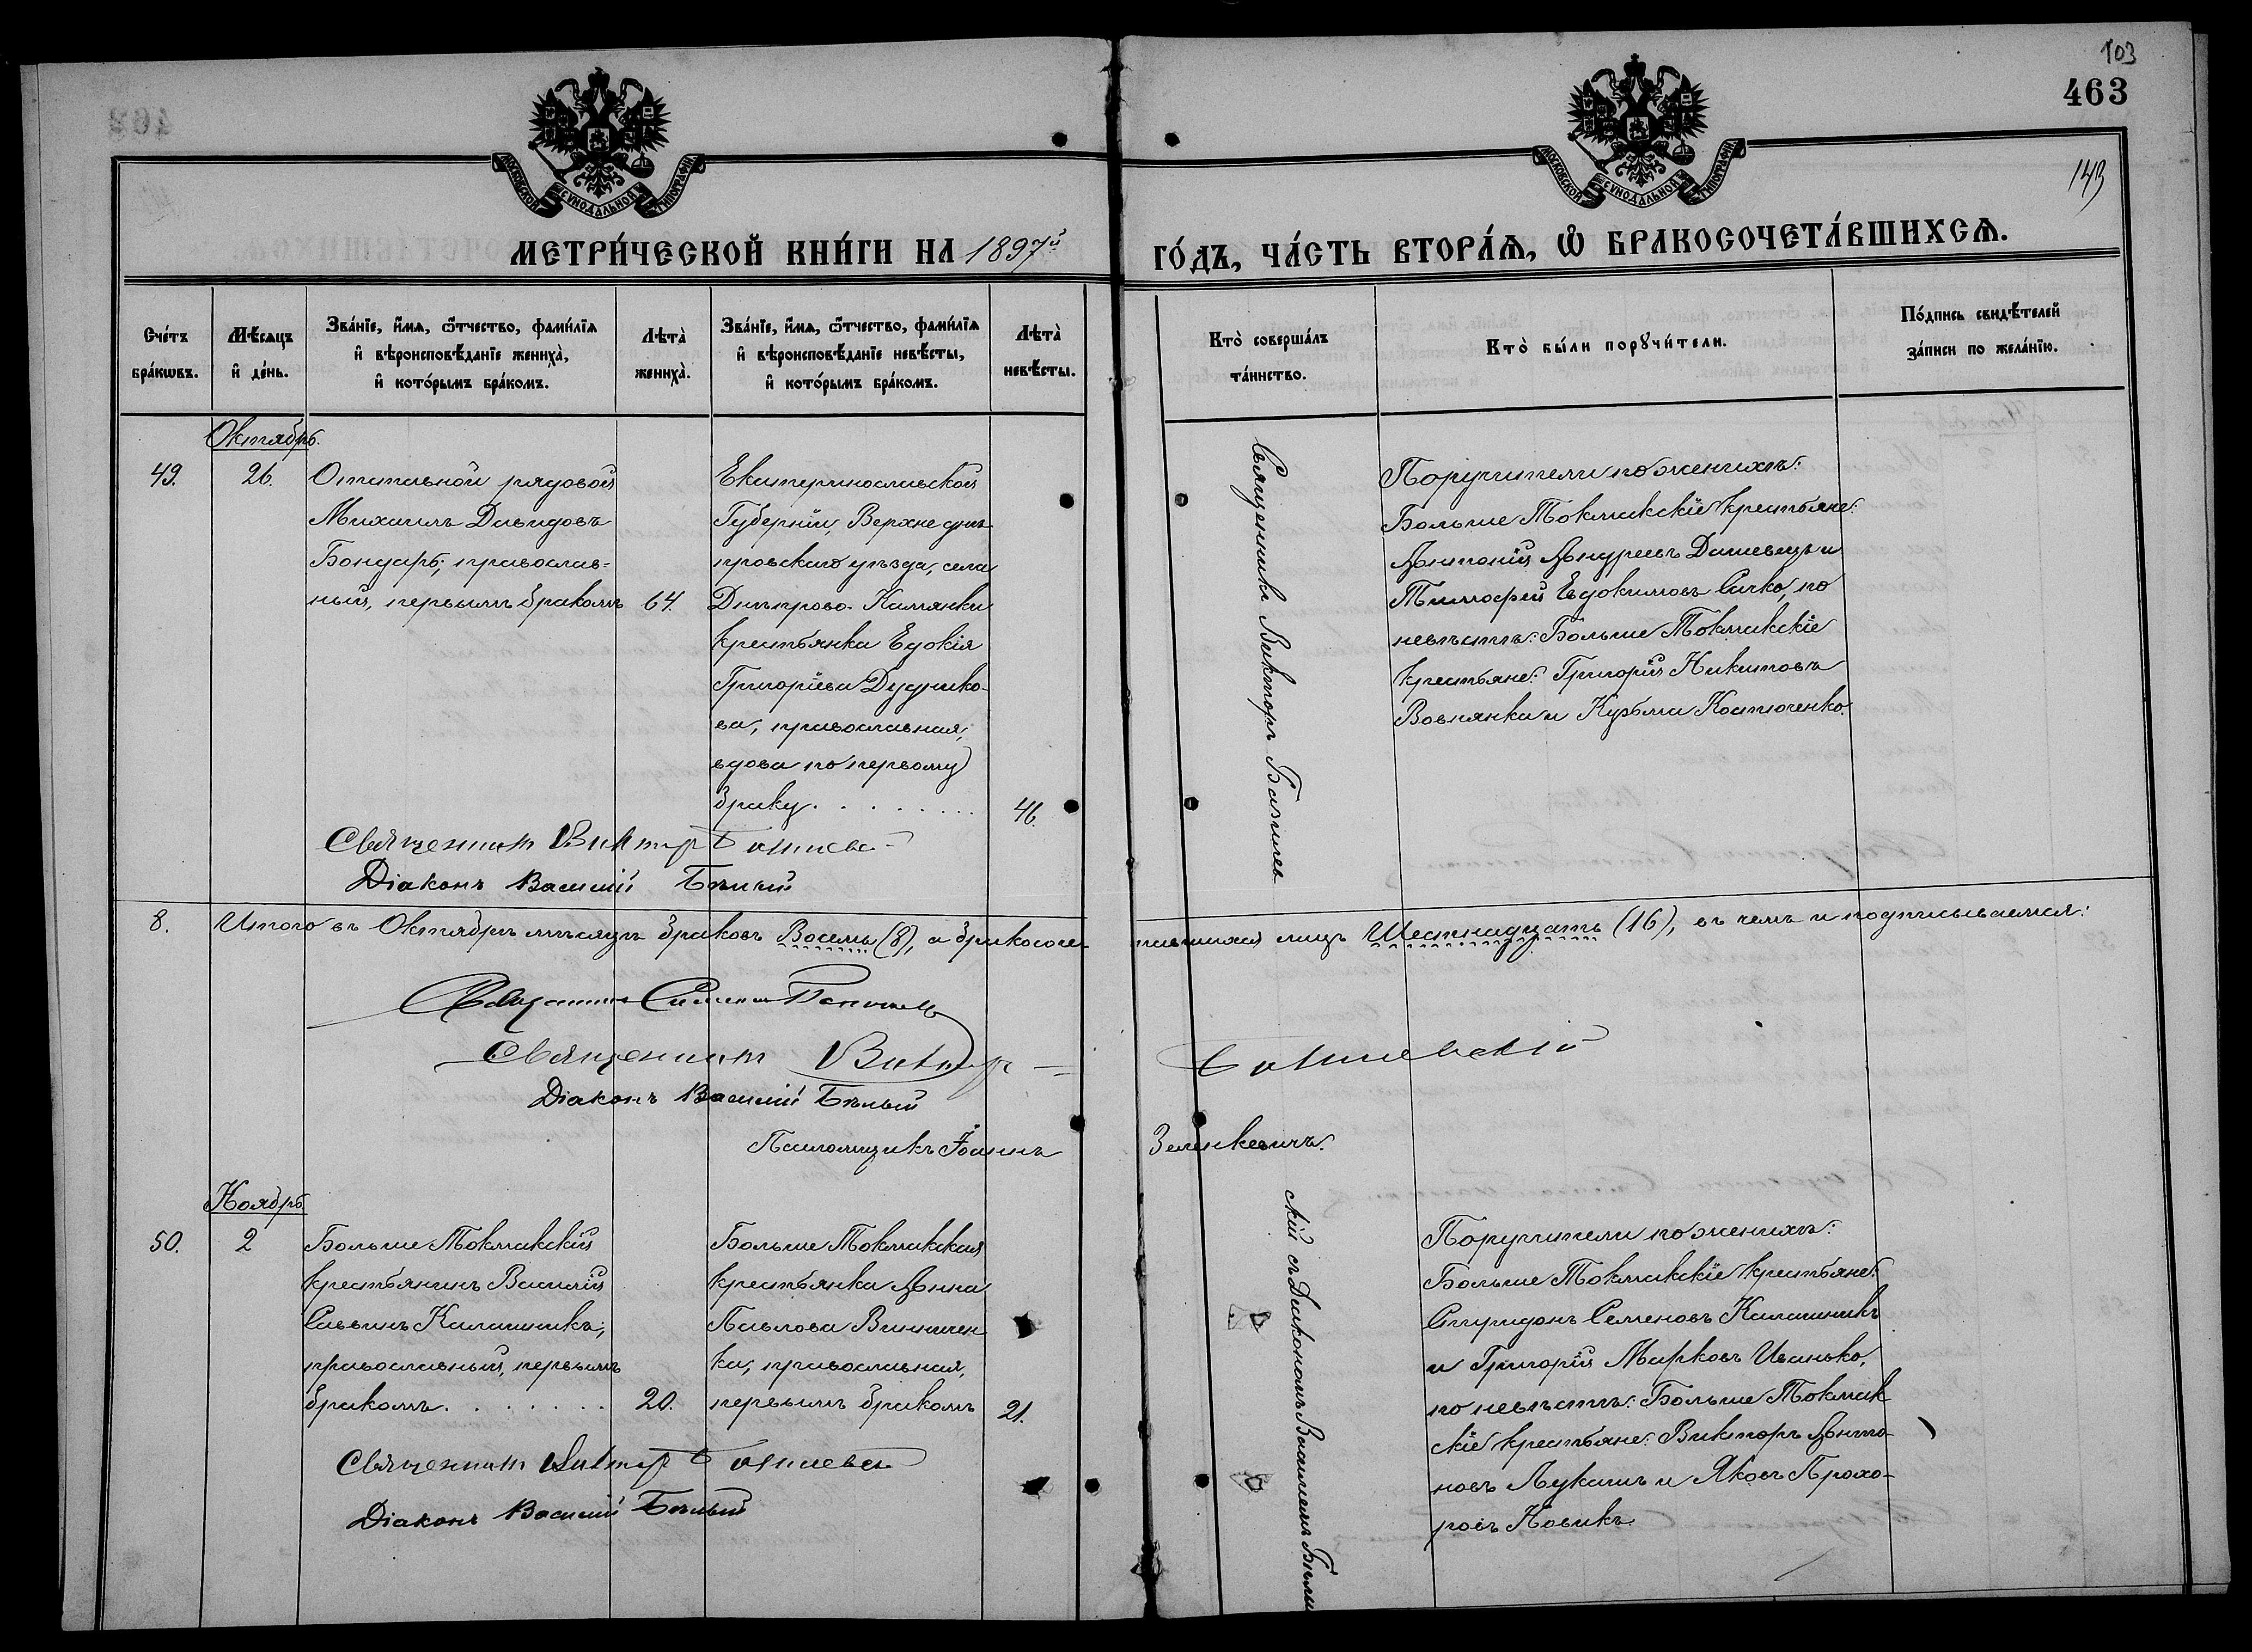 103
463
143
МОСКОВСКОЙ СУНОДАЛЬНОЙ ТИПОГРАФІИ
МОСКОВСКОЙ СУНОДАЛЬНОЙ ТИПОГРАФІИ
МЕТРИ́ЧЕСКОЙ КНИ́ГИ НА 1897й ГО́ДЪ, ЧА́СТЬ ВТОРА́Ѧ, Ѡ҆ БРАКОСОЧЕТА́ВШИХСѦ.
Сче́тъ бра́кѡвъ.
Мѣ́сяцъ и҆ де́нь.
Зва́нїе, и҆́мѧ, ѻ҆́тчество, фамѝлїѧ
и҆ вѣроисповѣ́данїе жениха̀,
и҆ кото́рымъ бра́комъ.
Лѣта̀ жениха̀.
Зва́нїе, и҆́мѧ, ѻ҆́тчество, фамѝлїѧ
и҆ вѣроисповѣ́данїе невѣ́сты,
и҆ кото́рымъ бра́комъ.
Лѣта̀ невѣ́сты.
Кто̀ соверша́лъ та́инство.
Кто̀ бы́ли порꙋчи́тели.
По́дпись свидѣ́телей
за́писи по жела́нїю.
Октябрь.
49.
26.
Отставной рядовой
Михаилъ Давидовъ
Бондарь, православ-
ный, первымъ бракомъ
64.
Екатеринославской
Губерніи, Верхнеднѣ-
провскаго уѣзда, села
Днѣпрово-Каменки
крестьянка Евдокія
Григоріева Дудучко-
ва, православная,
вдова по первому
браку . . . . . . . .
46.
Священникъ Викторъ
Поручители по женихѣ:
Больше Токмакскіе крестьяне:
Антоній Андреевъ Дашевецъ и
Тимофей Евдокимовъ Сичко, по
невѣстѣ: Больше Токмакскіе
крестьяне: Григорій Никитовъ
Вовнянка и Кузьма Костюченко.
Священникъ Викторъ
Діаконъ Василій Бѣлый
8.
Итого въ Октябрѣ мѣсяцѣ браковъ Восемь (8), а бракосоче- тавшихся лицъ Шестнадцать (16), въ чемъ и подписываемся:
Священникъ
Священникъ Викторъ
Діаконъ Василій Бѣлый
Псаломщикъ Іоаннъ Зеленкевичъ.
Ноябрь
50.
2
Больше Токмакскій
крестьянинъ Василій
Саввинъ Калашникъ,
православный, первымъ
бракомъ . . . . . . .
20.
Больше Токмакская
крестьянка Анна
Павлова Винничен-
ка, православная,
первымъ бракомъ
21.
скій съ Діакономъ Василіемъ Бѣлы
Поручители по женихѣ:
Больше Токмакскіе крестьяне:
Спиридонъ Семеновъ Калашникъ
и Григорій Марковъ Иванько,
по невѣстѣ: Больше Токмак
скіе крестьяне: Викторъ Анто-
новъ Лукашъ и Яковъ Прохо-
ровъ Новикъ.
Священникъ Викторъ
Діаконъ Василій Бѣлый